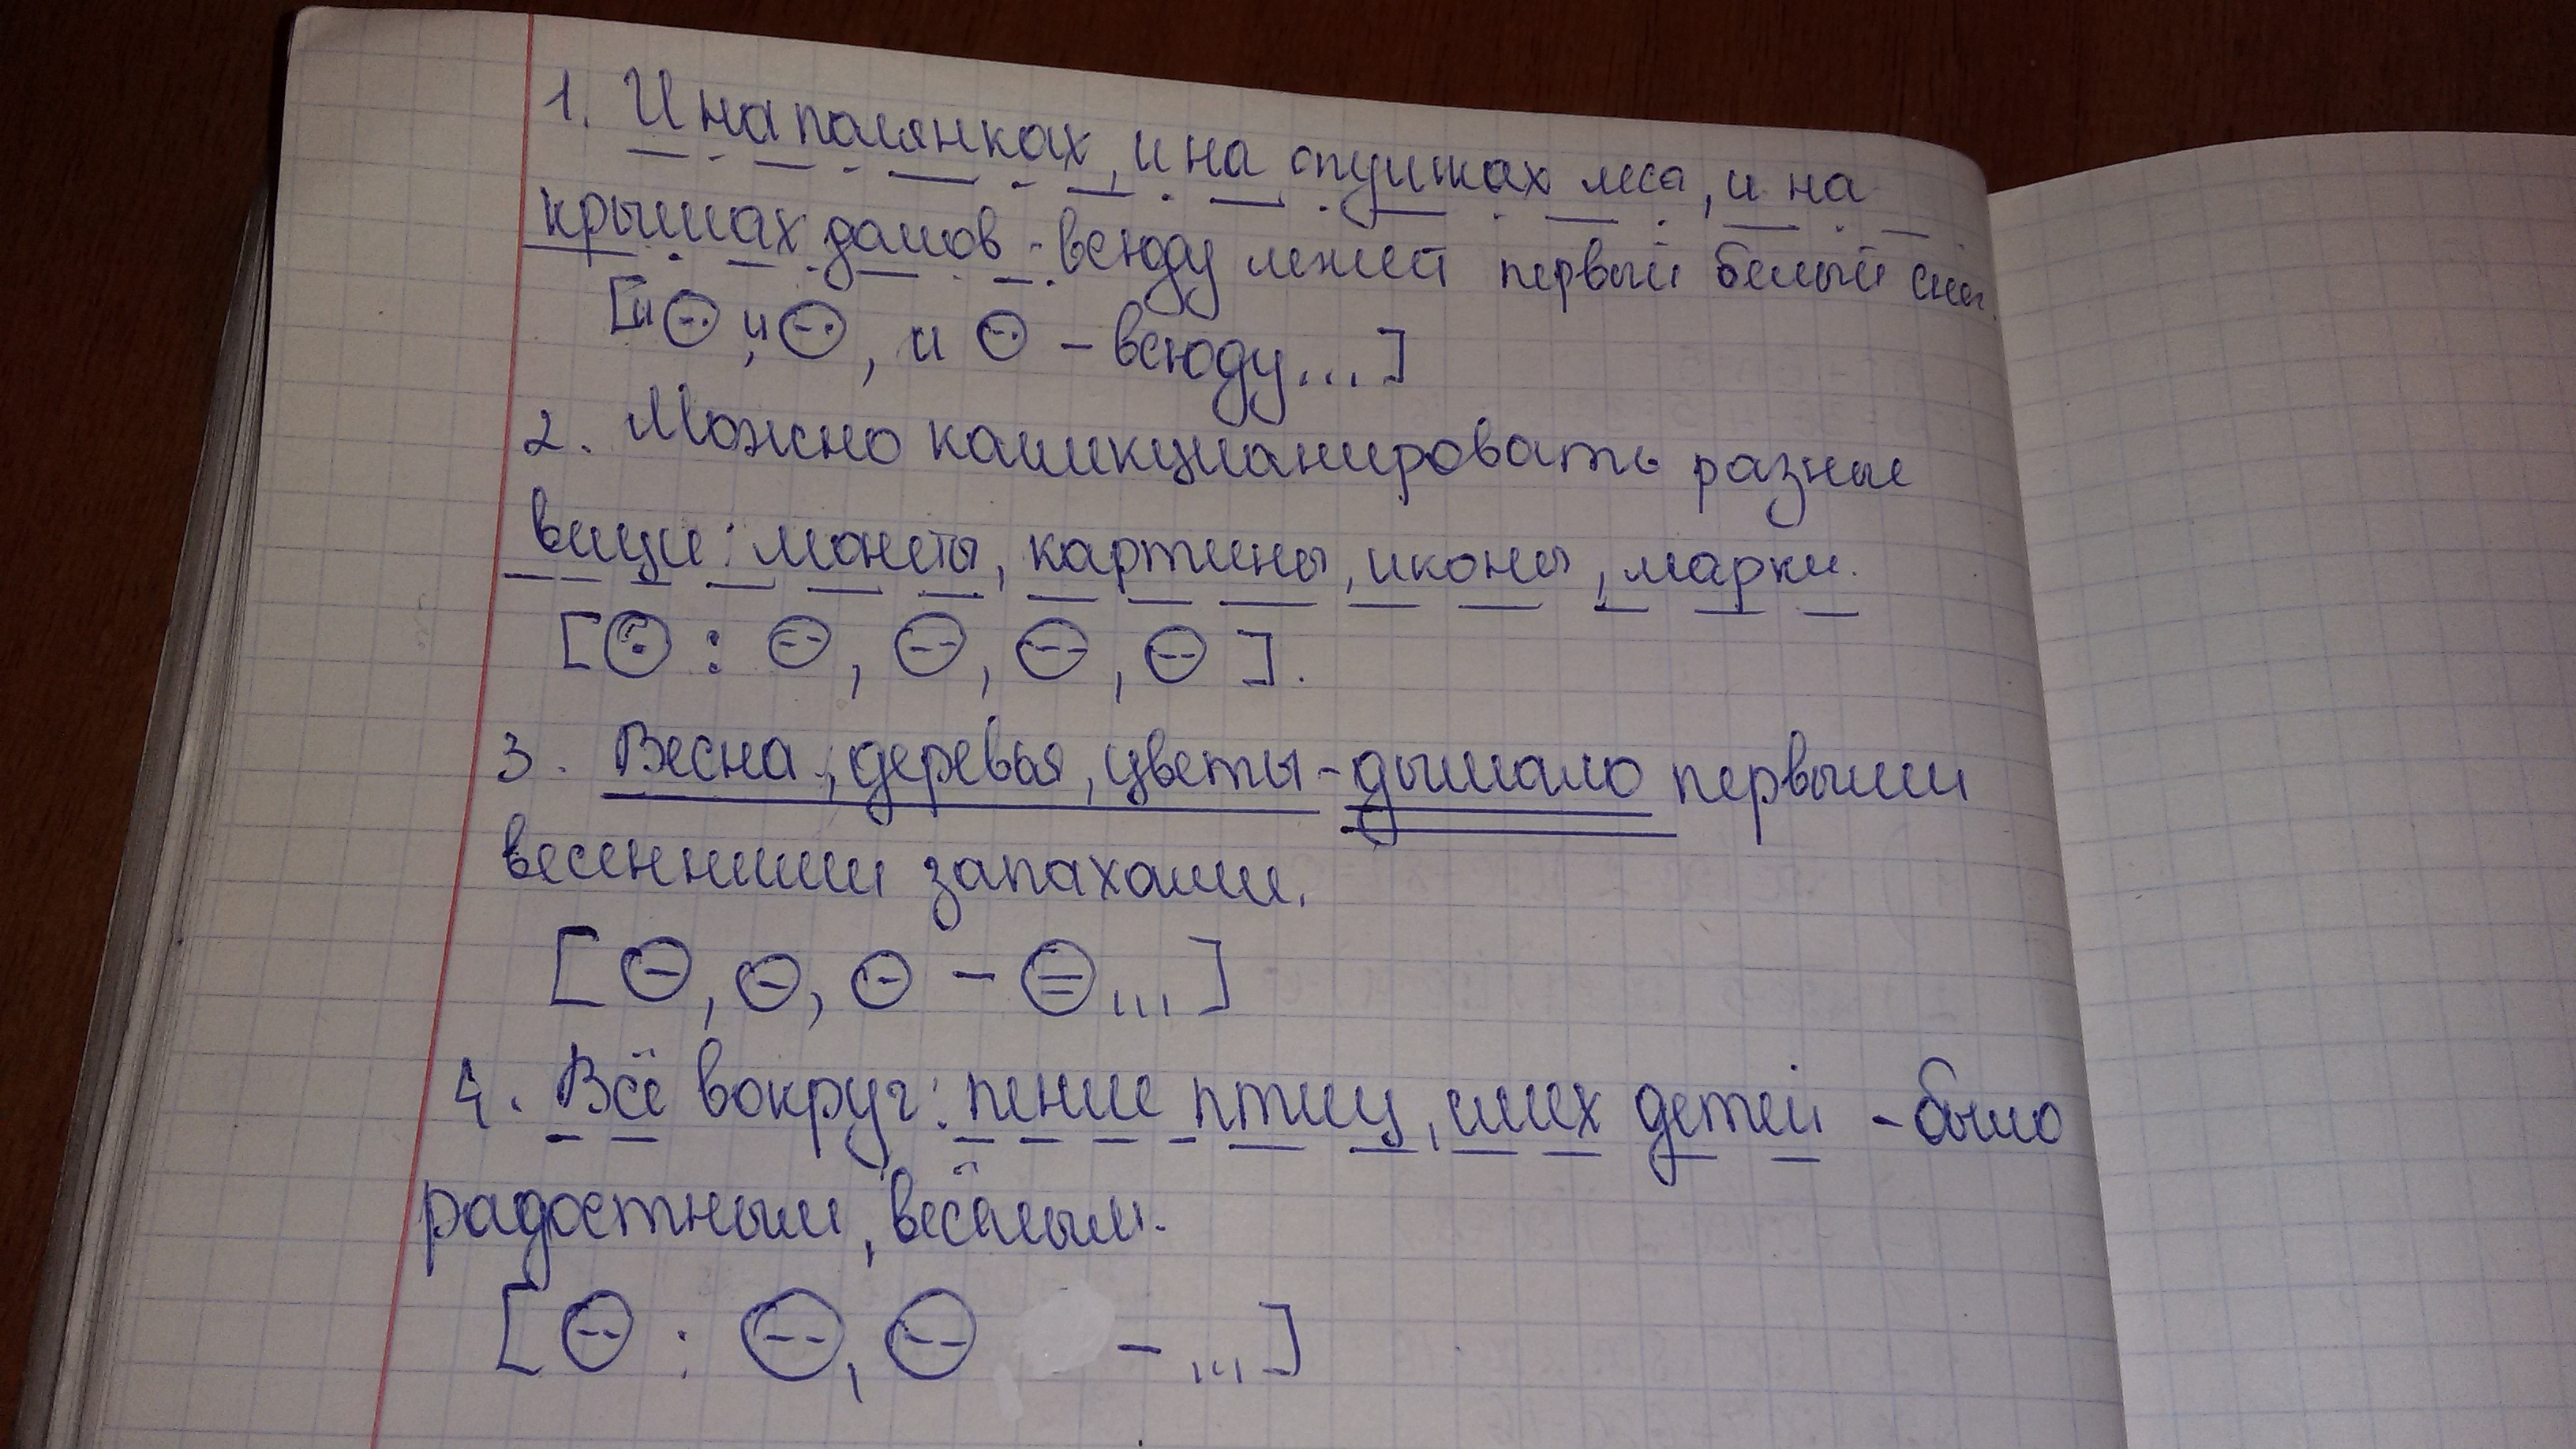 1. И на полянках, и на опушках леса, и на
крышах домов - всюду лежит первый белый снег.
[и ⊖, и ⊖, и ⊖ – всюду...]
2. Можно каликционировать разные
вещи: монеты, картины, иконы, марки.
[⊙ : ⊖, ⊖, ⊖, ⊖].
3. Весна, деревья, цветы - дышало первыми
весенними запахами.
[⊖, ⊖, ⊖ – ⊜...]
4. Всё вокруг: пение птиц, смех детей - было
радостным, весёлым.
[⊖ : ⊖, ⊖ – ...]